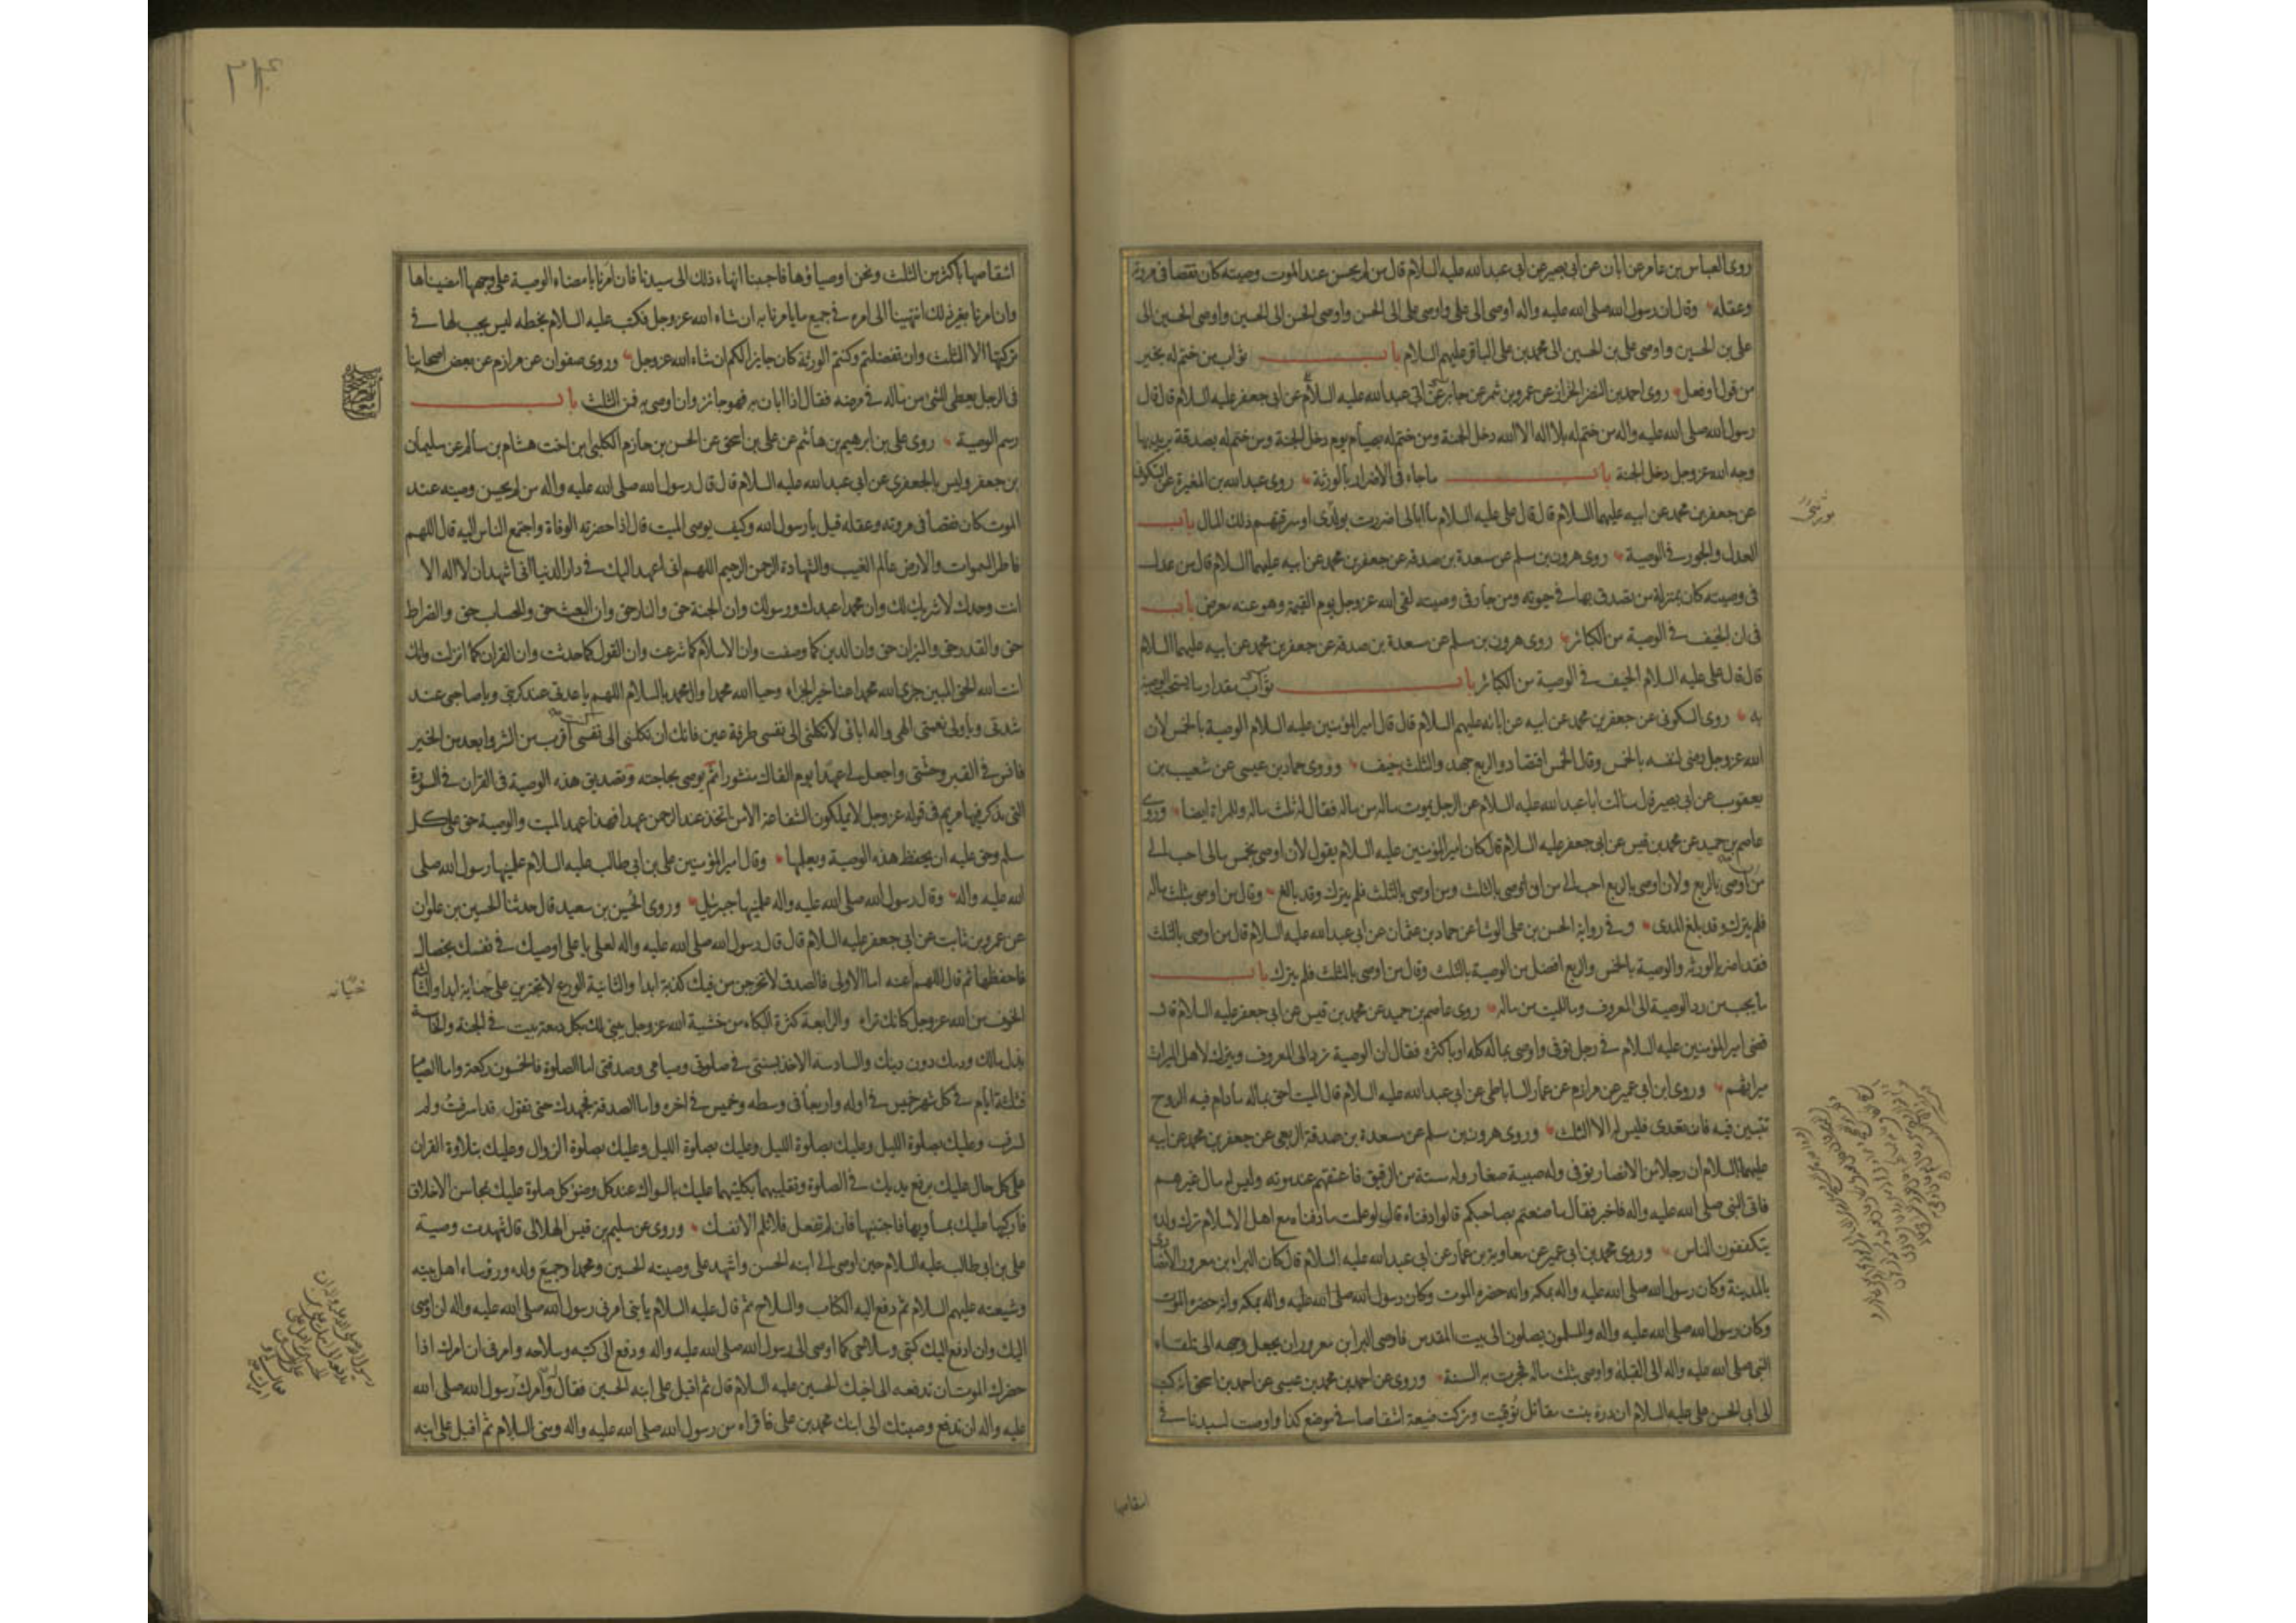 روى العباس بن عامر عن ابان عن ابى بصير عن ابى عبد الله عليه السلام قال من لم يحسن عند الموت وصيته كان نقصا فى مروته
وعقله وقال ان رسول الله صلى الله عليه واله اوصى الى على واوصى على الى الحسن واوصى الحسن الى الحسين واوصى الحسين الى
على بن الحسين واوصى على بن الحسين الى محمد بن على الباقر عليهم السلام باب ثواب من ختم له بخير
من قول او فعل روى احمد بن النضر الخزاز عن عمرو بن شمر عن جابر عن ابى عبد الله عليه السلام عن ابى جعفر عليه السلام قال قال
رسول الله صلى الله عليه واله من ختم له بلا اله الا الله دخل الجنة ومن ختم له بصيام يوم دخل الجنة ومن ختم له بصدقة يريد بها
وجه الله عز وجل دخل الجنة باب ماجاء فى الاضرار بالورثة روى عبد الله بن المغيرة عن السكونى
عن جعفر بن محمد عن ابيه عليهما السلام قال قال على عليه السلام ما ابالى اضررت بولدى او سرقتهم ذلك المال باب
العدل والجور فى الوصية روى هرون بن مسلم عن مسعدة بن صدقة عن جعفر بن محمد عن ابيه عليهما السلام قال من عدل
فى وصيته كان بمنزلة من تصدق بها فى حيوته ومن جار فى وصيته لقى الله عز وجل يوم القيمة وهو عنه معرض باب
فى ان الحيف فى الوصية من الكبائر روى هرون بن مسلم عن مسعدة بن صدقة عن جعفر بن محمد عن ابيه عليهما السلام
قال قال على عليه السلام الحيف فى الوصية من الكبائر باب مقدار ما يستحب الوصية
به روى السكونى عن جعفر بن محمد عن ابيه عن ابائه عليهم السلام قال قال امير المؤمنين عليه السلام الوصية بالخمس لان
الله عز وجل رضى لنفسه بالخمس وقال الخمس اقتصاد والربع جهد والثلث حيف وروى حماد بن عيسى عن شعيب بن
يعقوب عن ابى بصير قال سالت ابا عبد الله عليه السلام عن الرجل يموت ماله من ماله فقال له ثلث ماله وللمراة ايضا وروى
عاصم بن حميد عن محمد بن قيس عن ابى جعفر عليه السلام قال كان امير المؤمنين عليه السلام يقول لان اوصى بخمس مالى احب الى
من ان اوصى بالربع ولان اوصى بالربع احب الى من ان اوصى بالثلث ومن اوصى بالثلث فلم يترك وقد بالغ وقال من اوصى بثلث ماله
فلم يترك وقد بلغ المدى وفى رواية الحسن بن على الوشا عن حماد بن عثمان عن ابى عبد الله عليه السلام قال من اوصى بالثلث
فقد اضر بالورثة والوصية بالخمس والربع افضل من الوصية بالثلث وقال من اوصى بالثلث فلم يترك باب
ما يجب من رد الوصية الى المعروف وما للميت من ماله روى عاصم بن حميد عن محمد بن قيس عن ابى جعفر عليه السلام قال
قضى امير المؤمنين عليه السلام فى رجل توفى واوصى بماله كله او باكثره فقال ان الوصية ترد الى المعروف ويترك لاهل الميراث
ميراثهم وروى ابن ابى عمير عن مرازم عن عمار الساباطى عن ابى عبد الله عليه السلام قال الميت احق بماله مادام فيه الروح
تتبين فيه فان تعدى فليس له الا الثلث وروى هرون بن مسلم عن مسعدة بن صدقة الربعى عن جعفر بن محمد عن ابيه
عليهما السلام ان رجلا من الانصار توفى وله صبية صغار وله ستة من الرقيق فاعتقهم عند موته وليس له مال غيرهم
فاتى النبى صلى الله عليه واله فاخبر فقال ما صنعتم بصاحبكم قالوا دفناه قال لو علمت ما دفناه مع اهل الاسلام ترك ولده
يتكففون الناس وروى محمد بن ابى عمير عن معاوية بن عمار عن ابى عبد الله عليه السلام قال كان البراء بن معرور الانصارى
بالمدينة وكان رسول الله صلى الله عليه واله بمكه وانه حضره الموت وكان رسول الله صلى الله عليه واله بمكه وانه حضره الموت
وكان رسول الله صلى الله عليه واله والمسلمون يصلون الى بيت المقدس فاوصى البراء بن معرور ان يجعل وجهه الى تلقاء
النبى صلى الله عليه واله الى القبلة واوصى بثلث ماله فجرت به السنة وروى عن احمد بن محمد بن عيسى عن احمد بن اسحق انه كتب
الى ابى الحسن على عليه السلام ان درة بنت مقاتل توفيت وتركت ضيعة اشقاصا فى موضع كذا واوصت لسيدنا فى
اشقاصها
اشقاصها باكثر من الثلث ونحن اوصياؤها فاحببنا انهاء ذلك الى سيدنا فان امرنا بامضاء الوصية على وجهها امضيناها
وان امرنا بغير ذلك انتهينا الى امره فى جميع ما يامرنا به ان شاء الله عز وجل فكتب عليه السلام بخطه ليس يجب لها فى
تركتها الا الثلث وان تفضلتم وكنتم الورثة كان جايزا لكم ان شاء الله عز وجل وروى صفوان عن مرازم عن بعض اصحابنا
فى الرجل يعطى الشئ من ماله فى مرضه فقال اذا ابان به فهو جائز وان اوصى به فمن الثلث باب
رسم الوصية روى على بن ابرهيم بن هاشم عن على بن اسحق عن الحسن بن حازم الكلبى ابن اخت هشام بن سالم عن سليمان
بن جعفر وليس بالجعفرى عن ابى عبد الله عليه السلام قال قال رسول الله صلى الله عليه واله من لم يحسن وصيته عند
الموت كان نقصا فى مروته وعقله قيل يا رسول الله وكيف يوصى الميت قال اذا حضرته الوفاة واجتمع الناس اليه قال اللهم
فاطر السموات والارض عالم الغيب والشهادة الرحمن الرحيم اللهم انى اعهد اليك فى دار الدنيا انى اشهد ان لا اله الا
انت وحدك لا شريك لك وان محمدا عبدك ورسولك وان الجنة حق والنار حق وان البعث حق والحساب حق والصراط
حق والقدر حق والميزان حق وان الدين كما وصفت وان الاسلام كما شرعت وان القول كما حدثت وان القران كما انزلت وانك
انت الله الحق المبين جزى الله محمدا عنا خير الجزاء وحيا الله محمدا وال محمد بالسلام اللهم يا عدتى عند كربتى ويا صاحبى عند
شدتى ويا ولى نعمتى الهى واله ابائى لا تكلنى الى نفسى طرفة عين فانك ان تكلنى الى نفسى اقرب من الشر وابعد من الخير
فانس فى القبر وحشتى واجعل لى عهدا يوم القاك منشورا ثم يوصى بحاجته وتصديق هذه الوصية فى القران فى السورة
التى يذكر فيها مريم فى قوله عز وجل لا يملكون الشفاعة الا من اتخذ عند الرحمن عهدا فهذا عهد الميت والوصية حق على كل
مسلم وحق عليه ان يحفظ هذه الوصية ويعلمها وقال امير المؤمنين على بن ابى طالب عليه السلام علمنيها رسول الله صلى
الله عليه واله وقال رسول الله صلى الله عليه واله علمنيها جبرئيل وروى الحسين بن سعيد قال حدثنا الحسين بن علوان
عن عمرو بن ثابت عن ابى جعفر عليه السلام قال قال رسول الله صلى الله عليه واله لعلى يا على اوصيك فى نفسك بخصال
فاحفظها ثم قال اللهم اعنه اما الاولى فالصدق لا تخرجن من فيك كذبة ابدا والثانية الورع لا تجترين على خيانة ابدا والثالثة
الخوف من الله عز وجل كانك تراه والرابعة كثرة البكاء من خشية الله عز وجل يبنى لك بكل دمعة بيت فى الجنة والخامسة
بذل مالك ودمك دون دينك والسادسة الاخذ بسنتى فى صلوتى وصيامى وصدقتى اما الصلوة فالخمسون ركعة واما الصيام
فثلثة ايام فى كل شهر خميس فى اوله واربعا فى وسطه وخميس فى اخره واما الصدقة فجهدك حتى تقول قد اسرفت ولم
تسرف وعليك بصلوة الليل وعليك بصلوة الليل وعليك بصلوة الليل وعليك بصلوة الزوال وعليك بتلاوة القران
على كل حال عليك برفع يديك فى الصلوة وتقليبهما بكلتيهما عليك بالسواك عند كل وضوء كل صلوة عليك بمحاسن الاخلاق
فاركبها عليك بمساويها فاجتنبها فان لم تفعل فلا تلم الا نفسك وروى عن سليم بن قيس الهلالى قال شهدت وصية
على بن ابى طالب عليه السلام حين اوصى الى ابنه الحسن واشهد على وصيته الحسين ومحمدا وجميع ولده ورؤساء اهل بيته
وشيعته عليهم السلام ثم دفع اليه الكتاب والسلاح ثم قال عليه السلام يا بنى امرنى رسول الله صلى الله عليه واله ان اوصى
اليك وان ادفع اليك كتبى وسلاحى كما اوصى الى رسول الله صلى الله عليه واله ودفع الى كتبه وسلاحه وامرنى ان امرك اذا
حضرك الموت ان تدفعه الى اخيك الحسين عليه السلام قال ثم اقبل على ابنه الحسين فقال وامرك رسول الله صلى الله
عليه واله ان تدفع وصيتك الى ابنك محمد بن على فاقراه من رسول الله صلى الله عليه واله ومنى السلام ثم اقبل على ابنه